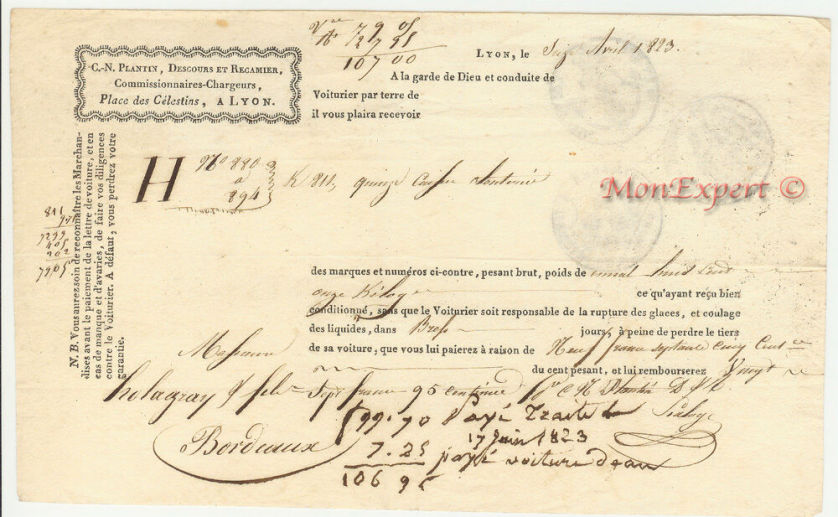 C.-N. PLANTIN, DESCOURS ET RECAMIER,
Commissionnaires-Chargeurs,
Place des Célestins, A LYON.
79 05
27 95
107 00
LYON, le Seize Avril 1823.
A la garde de Dieu et conduite de
Voiturier par terre de
il vous plaira recevoir
N. B. Vous aurez soin de reconnaître les Marchan-
dises avant le paiement de la lettre de voiture, et en
cas de manque et d'avaries, de faire vos diligences
contre le Voiturier. A défaut, vous perdrez votre
garantie.
H
No 880
a
894
K 811, quinze Caisses
MonExpert ©
811
975
7299
405
202
7905
des marques et numéros ci-contre, pesant brut, poids de huit Cent
onze Kilog ce qu'ayant reçu bien
conditionné, sans que le Voiturier soit responsable de la rupture des glaces, et coulage
des liquides, dans jours, à peine de perdre le tiers
de sa voiture, que vous lui paierez à raison de Neuf francs septante cinq Cent
du cent pesant, et lui rembourserez Vingt
Messieurs
& fils
Sept francs 95 centimes C N Plantin D & R
Bordeaux
99.70 Payé Traite
17 Juin 1823
7.25 payé voiture d'eau
106 95